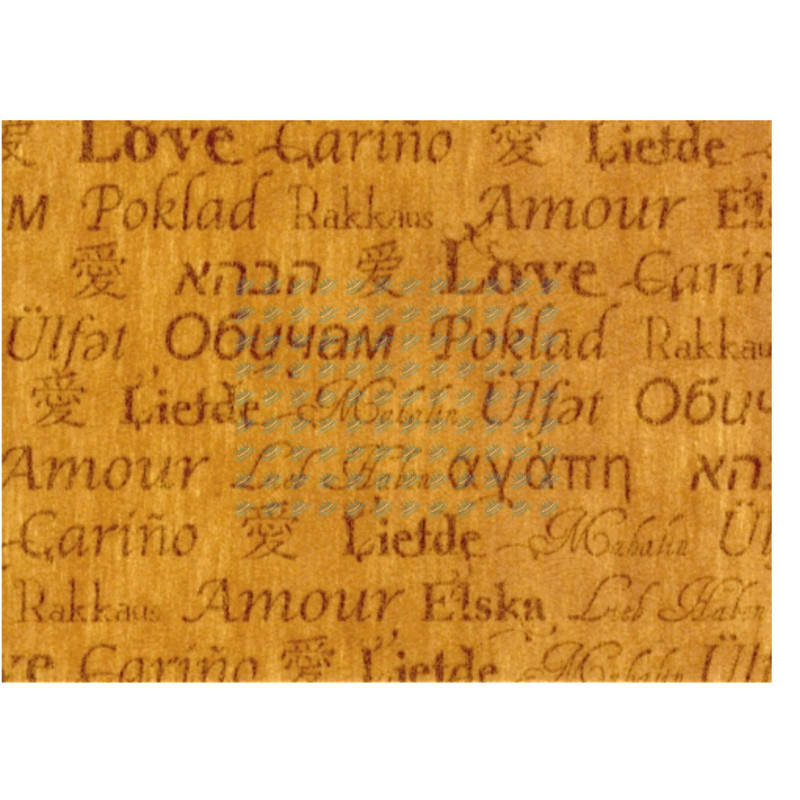 Love Cariño 愛 Liefde
м Poklad Rakkaus Amour Els
愛 הבהא 爱 Love Cariñ
Ülfət Обичам Poklad Rakkau
愛 Liefde Mahalin Ülfət Обич
Amour Lieb Haben αγάπη
Cariño 愛 Liefde Mahalin Ül
Rakkaus Amour Elska Lieb Haben
ve Cariño 愛 Liefde Mahalin Ül